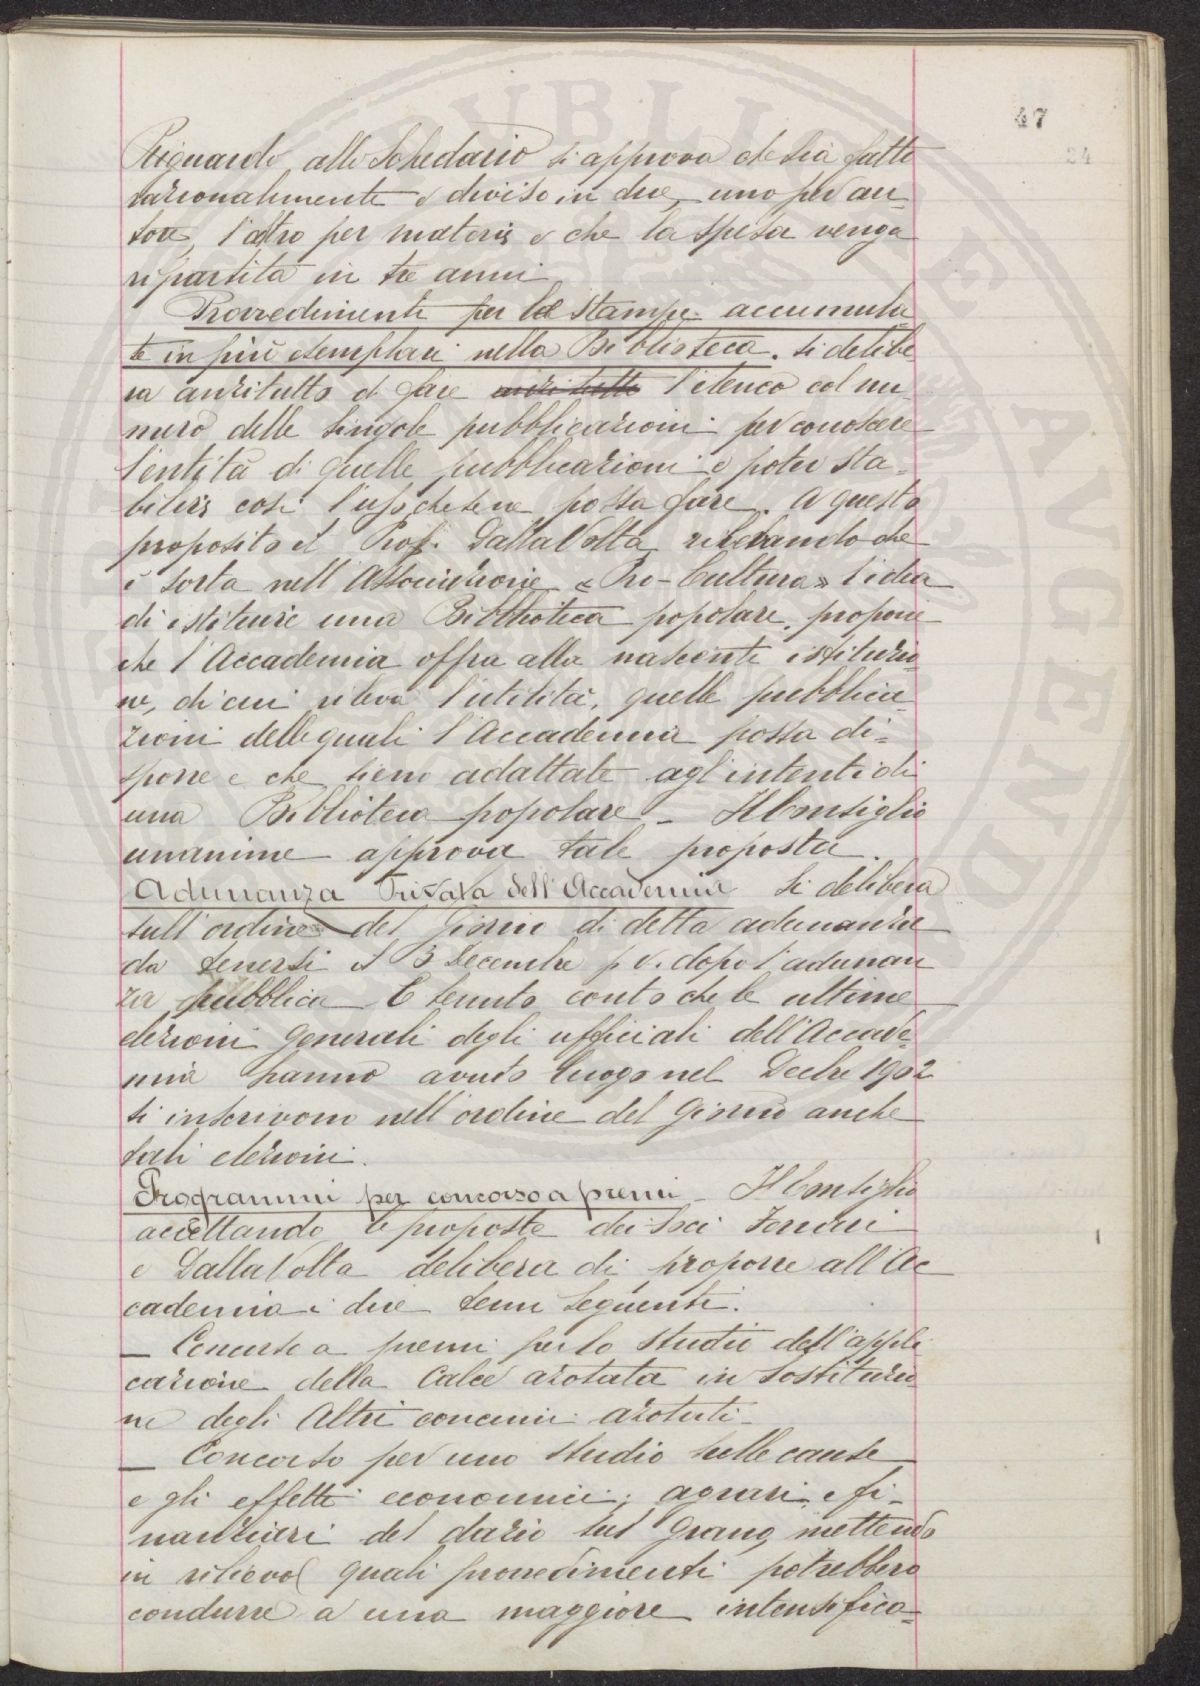 47
24
Riguardo allo Schedario si approva che sia fatto
razionalmente e diviso in due, uno per au=
tori, l'altro per materie e che la spesa venga
ripartita in tre anni
Provvedimenti per le stampe accumula=
te in più esemplari nella Biblioteca. Si delibe
ra anzitutto di fare anzitutto l'elenco col nu=
mero delle singole pubblicazioni per conoscere
l'entità di quelle pubblicazioni e poter sta=
bilire così l'uso che se ne possa fare. A questo
proposito il Prof. Dalla Volta rilevando che
è sorta nell'Associazione «Pro-Cultura» l'idea
di istituire una Biblioteca popolare, propone
che l'Accademia offra alla nascente istituzio
ne, di cui rileva l'utilità, quelle pubblica=
zioni delle quali l'Accademia possa di=
sporre e che sieno adattate agl'intenti di
una Biblioteca popolare - Il Consiglio
unanime approva tale proposta.
Adunanza Privata dell'Accademia Si delibera
sull'ordine del Giorno di detta adunanza
da tenersi il 3 Decembre p.v. dopo l'adunan
za pubblica E tenuto conto che le ultime
elezioni generali degli ufficiali dell'Accade=
mia hanno avuto luogo nel Decbre 1902
si inscrivono nell'ordine del Giorno anche
tali elezioni.
Programmi per concorso a premi - Il Consiglio
accettando le proposte dei Soci
e Dalla Volta delibera di proporre all'Ac
cademia i due temi seguenti:
— Concorso a premi per lo studio dell'appli
cazione della Calce azotata in sostituzio
ne degli altri concimi azotati -
— Concorso per uno studio sulle cause
e gli effetti economici, agrari, e fi=
nanziari del dazio sul Grano, mettendo
in rilievo quali provvedimenti potrebbero
condurre a una maggiore intensifica=